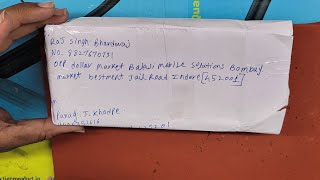 Raj Singh Bhardwaj
No. 8327670731
OPP dollar market Balaji mobile Solutions Bombay
market bestment Jail Road Indore [452001]
Parag J. Khodpe